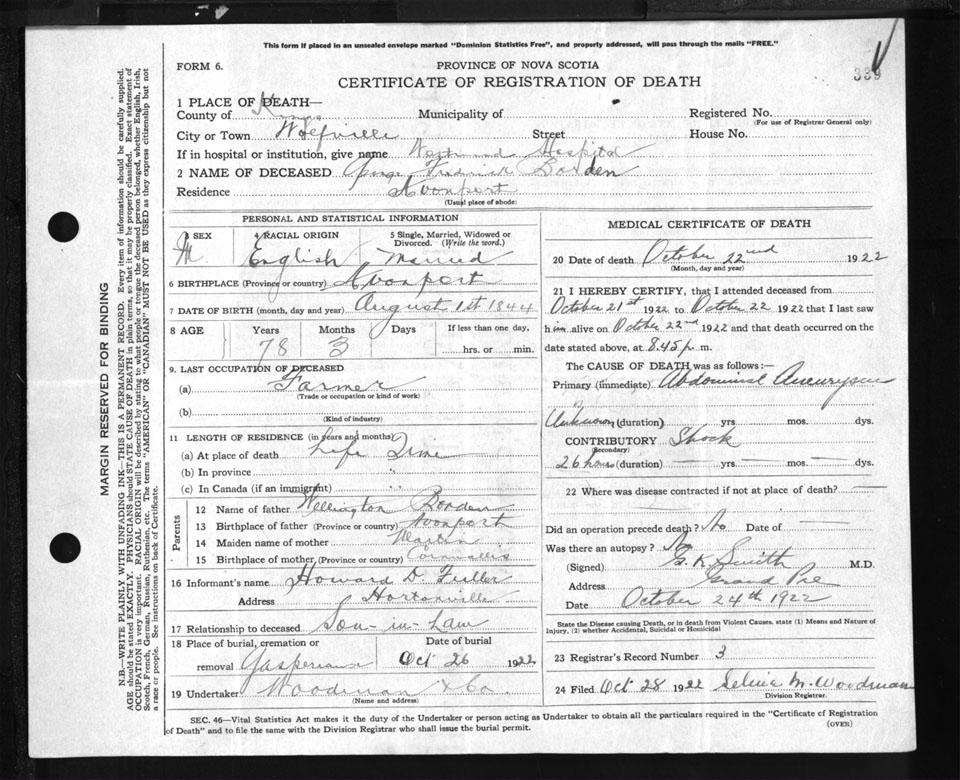 This form if placed in an unsealed envelope marked "Dominion Statistics Free", and properly addressed, will pass through the mails "FREE."
FORM 6.
PROVINCE OF NOVA SCOTIA
339
CERTIFICATE OF REGISTRATION OF DEATH
1 PLACE OF DEATH—
County of Kings Municipality of Registered No.
(For use of Registrar General only)
City or Town Wolfville Street House No.
If in hospital or institution, give name Westwood Hospital
2 NAME OF DECEASED George Frederick Borden
Residence Avonport
(Usual place of abode)
PERSONAL AND STATISTICAL INFORMATION
3 SEX 4 RACIAL ORIGIN 5 Single, Married, Widowed or Divorced. (Write the word.)
M. English Married
6 BIRTHPLACE (Province or country) Avonport
7 DATE OF BIRTH (month, day and year) August 1st 1844
8 AGE Years Months Days If less than one day,
78 3 hrs. or min.
9. LAST OCCUPATION OF DECEASED
(a) Farmer
(Trade or occupation or kind of work)
(b)
(Kind of industry)
11 LENGTH OF RESIDENCE (in years and months)
(a) At place of death Life Time
(b) In province "
(c) In Canada (if an immigrant) "
Parents
12 Name of father Wellington Borden
13 Birthplace of father (Province or country) Avonport
14 Maiden name of mother Martin
15 Birthplace of mother (Province or country) Cornwallis
16 Informant's name Howard D. Fuller
Address Hortonville
17 Relationship to deceased Son-in-Law
18 Place of burial, cremation or removal Gaspereaux Date of burial Oct 26 1922
19 Undertaker Woodman & Co.
(Name and address)
MEDICAL CERTIFICATE OF DEATH
20 Date of death October 22nd 1922
(Month, day and year)
21 I HEREBY CERTIFY, that I attended deceased from
October 21st 1922 to October 22 1922 that I last saw
him alive on October 22nd 1922 and that death occurred on the
date stated above, at 8.45 p.m.
The CAUSE OF DEATH was as follows:—
Primary (immediate) Abdominal Aneurysm
Unknown (duration) yrs mos. dys.
CONTRIBUTORY Shock
(Secondary)
26 hours (duration) — yrs — mos. — dys.
22 Where was disease contracted if not at place of death? —
Did an operation precede death? No Date of —
Was there an autopsy? No
(Signed) G. K. Smith M.D.
Address Grand Pre
Date October 24th 1922
State the Disease causing Death, or in death from Violent Causes, state (1) Means and Nature of Injury, (2) whether Accidental, Suicidal or Homicidal
23 Registrar's Record Number 3
24 Filed Oct 28 1922 Selina M. Woodman
Division Registrar.
SEC. 46—Vital Statistics Act makes it the duty of the Undertaker or person acting as Undertaker to obtain all the particulars required in the "Certificate of Registration
of Death" and to file the same with the Division Registrar who shall issue the burial permit.
(OVER)
MARGIN RESERVED FOR BINDING
N.B.—WRITE PLAINLY WITH UNFADING INK—THIS IS A PERMANENT RECORD. Every item of information should be carefully supplied.
AGE should be stated EXACTLY. PHYSICIANS should STATE CAUSE OF DEATH in plain terms, so that it may be properly classified. Exact statement of
OCCUPATION is very important. RACIAL ORIGIN will be described by stating to what people or tongue the deceased person belonged, whether English, Irish,
Scotch, French, German, Russian, Ruthenian, etc. The terms "AMERICAN" OR "CANADIAN" MUST NOT BE USED as they express citizenship but not
a race or people. See instructions on back of Certificate.